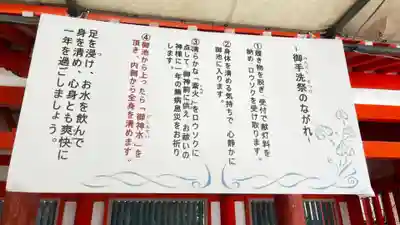 ～御手洗祭のながれ～
①履き物を脱ぎ、受付で献灯料を
納め、ロウソクを受け取ります。
②身体を清める気持ちで、心静かに
御池に入ります。
③清らかな「斎火」をロウソクに
点して、御神前に供え、お祓いの
神様に一年の無病息災をお祈り
します。
④御池から上ったら「御神水」を
頂き、内側から全身を清めます。
足を浸け、お水を飲んで
身を清め、心身とも爽快に
一年を過ごしましょう。